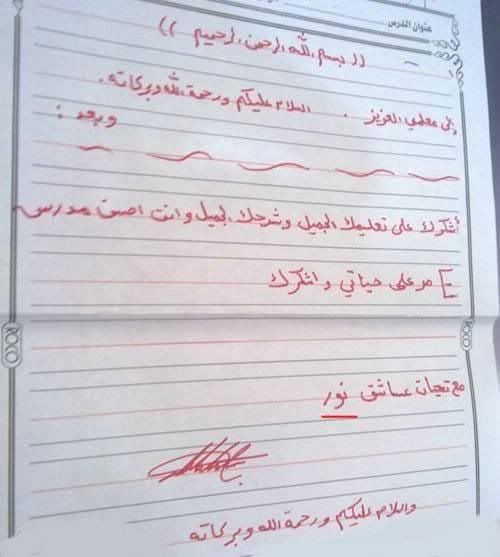 عنوان الدرس
(( بسم الله الرحمن الرحيم ))
إلى معلمي العزيز . السلام عليكم ورحمة الله وبركاته.
وبعد :
أشكرك على تعليمك الجميل وشرحك الجميل وانت احسن مدرس
مر على حياتي واشكرك
مع تحيات عاشق نور
والسلام عليكم ورحمة الله وبركاته
ROCO
ROCO